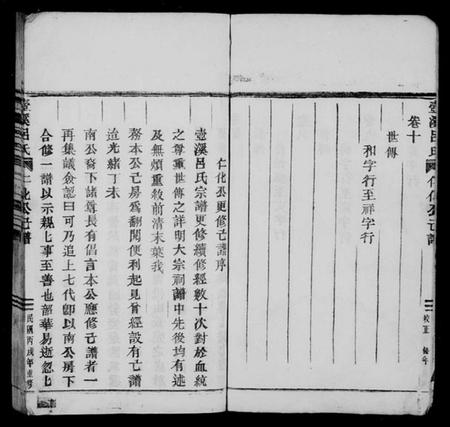 壺溪呂氏
卷十
世傳
和字行至祥字行
仁化公更修亡譜序
壺溪呂氏宗譜更修續修經數十次對於血統
之尊重世傳之詳明大宗祠譜中先後均有述
及無煩重敘前清末葉我
務本公己房為翻閱便利起見曾經設有亡譜
迨光緒丁未
南公裔下諸尊長有倡言本公廳修亡譜者一
再集議僉認曰可乃追上七代即以南公房下
合修一譜以示親上事至善也韶華易逝忽上
壺溪呂氏 仁化公亡譜
民國丙戌年重修